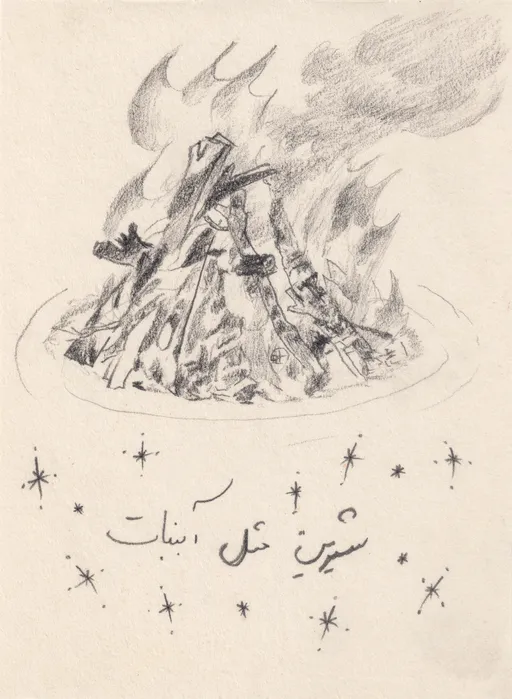 شیرین مثل آبنبات